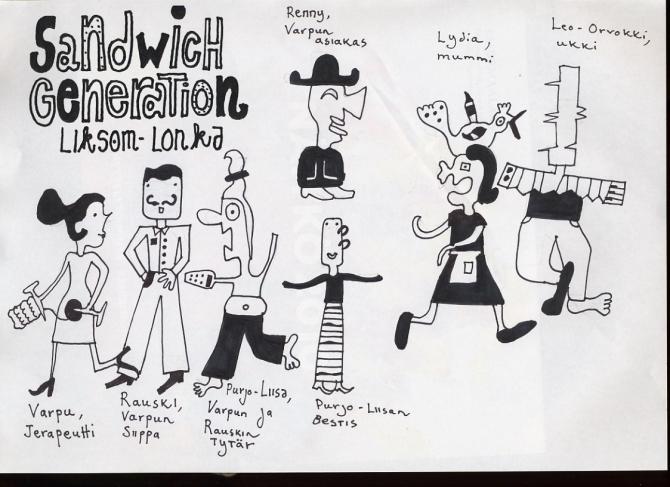 SandwicH
GeneraTion
Liksom-Lonka
Renny,
Varpun
asiakas
Lydia,
mummi
Leo-Orvokki,
ukki
Varpu,
Terapeutti
Rauski,
Varpun
Siippa
Purjo-Liisa,
Varpun ja
Rauskin
Tytär
Purjo-Liisan
Bestis